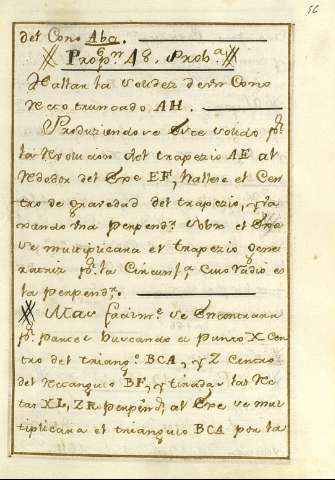 56
del Cono Aba.
Prop.on 48. Prob.a
Hallar la solidez de un Cono
Recto truncado AH.
Produziendose Este solido p.r
la revolucion del trapezio AE al
Rededor del Exe EF, hallese el Cen
tro de gravedad del trapezio, y ti
rando una perpend.r sobre el Exe
se multiplicara el trapezio gene
ratriz p.r la Circunf.a, cuio radio es
la perpend.r.
Mas facilm.te se Encontrara
p.r partes buscando el punto X Cen
tro del triang.o BCA, y Z Centro
del Rectangulo BF, y tiradas las Re
tas XL, ZR perpend.s al Exe se mul
tiplicara el triangulo BCA por la